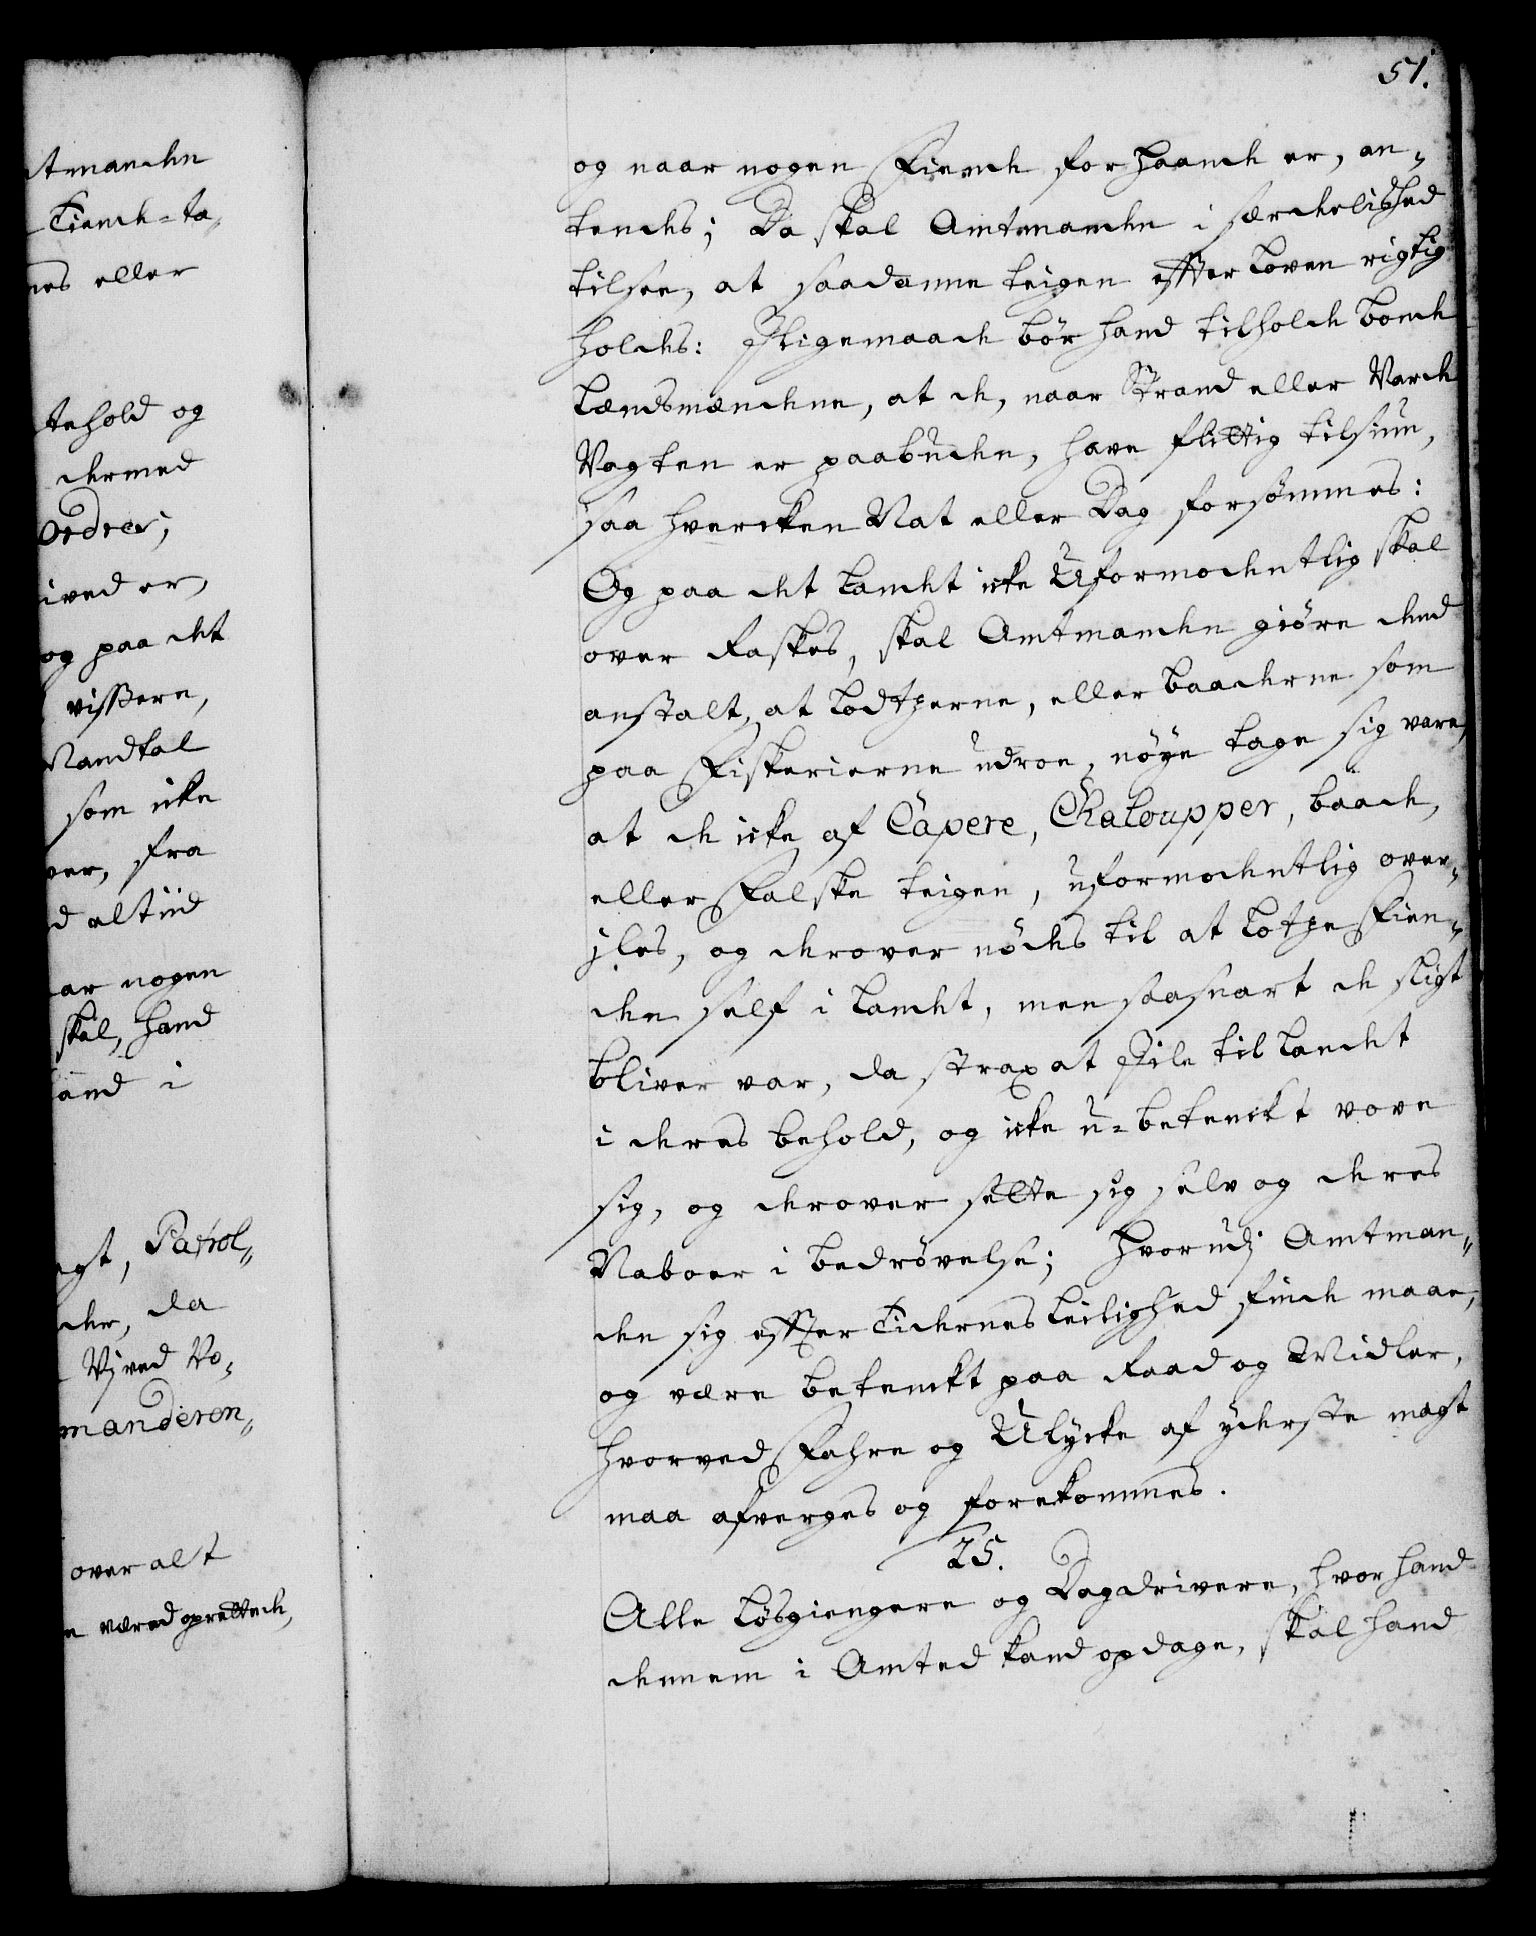 tmanden
Fiende-ta„
nes eller
tehold og
dermed
Ordrer;
ived er,
og paa det
vissere,
Mandtal
som icke
ver, fra
d altiid
ar nogen
skal, hand
and i
agt, Patrol„
der, da
Vj ved Vo„
manderen„
over alt
e væred oprettede,
51.
og naar nogen Fiende for haande er, an„
tendes; Da skal Amtmanden i særdelished
tilsee, at saadanne teigen effter Loven rigtig
holdes: Jligemaade bør hand tilholde bonde
Lændsmændene, at de, naar Strand eller Varde
Vagten er paabuden, have flittig tilsiun,
saa hvercken Nat eller Dag forsømmes:
Og paa det Landet icke Uformodentlig skal
over Raskes, skal Amtmanden giøre dend
anstalt, at Lodtzerne, eller baaderne som
paa Fiskerierne udroe, nøye tage sig vare,
at de icke af Capere, Chaloupper, baade,
eller Falske teigen, uformodentlig over„
jles, og derover nødes til at Lotze Fien„
den self i Landet, men saasnart de sligt
bliver var, da strax at Jile til Landet
i deres behold, og icke u-betenckt vove
sig, og derover sette sig selv og deres
Naboer i bedrøvelse; Hvorudj Amtman„
den sig effter Tidernes Leilighed finde maae,
og være betenckt paa Raad og Midler,
hvorved Fahre og Ulycke af yderste magt
maa afverges og forekommes.
25.
Alle Løsgiengere og Dagdrivere, hvor hand
dennem i Amted kand opdage, skal hand